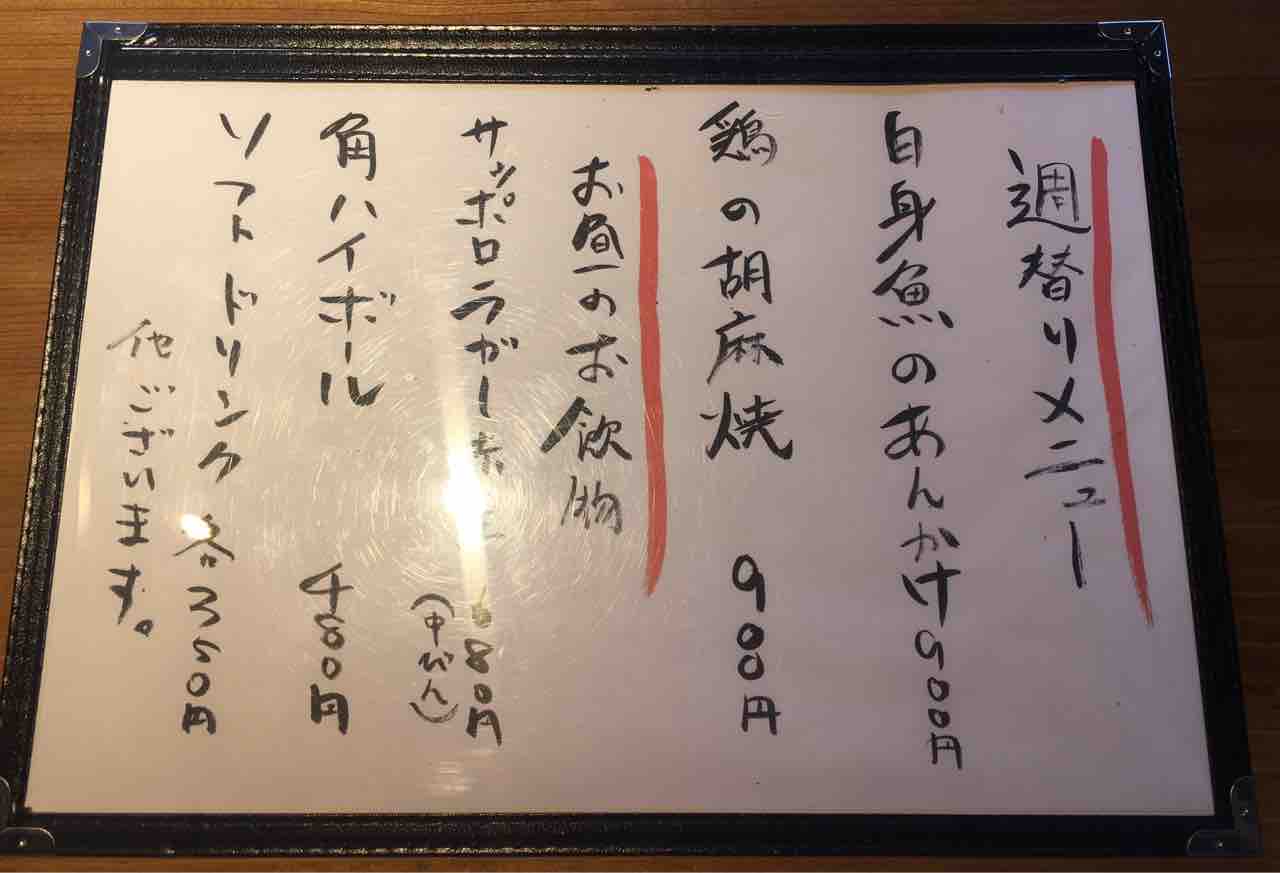 週替りメニュー
白身魚のあんかけ900円
鶏の胡麻焼 900円
お昼のお飲物
サッポロラガー 680円
(中びん)
角ハイボール 480円
ソフトドリンク 各350円
他ございます。